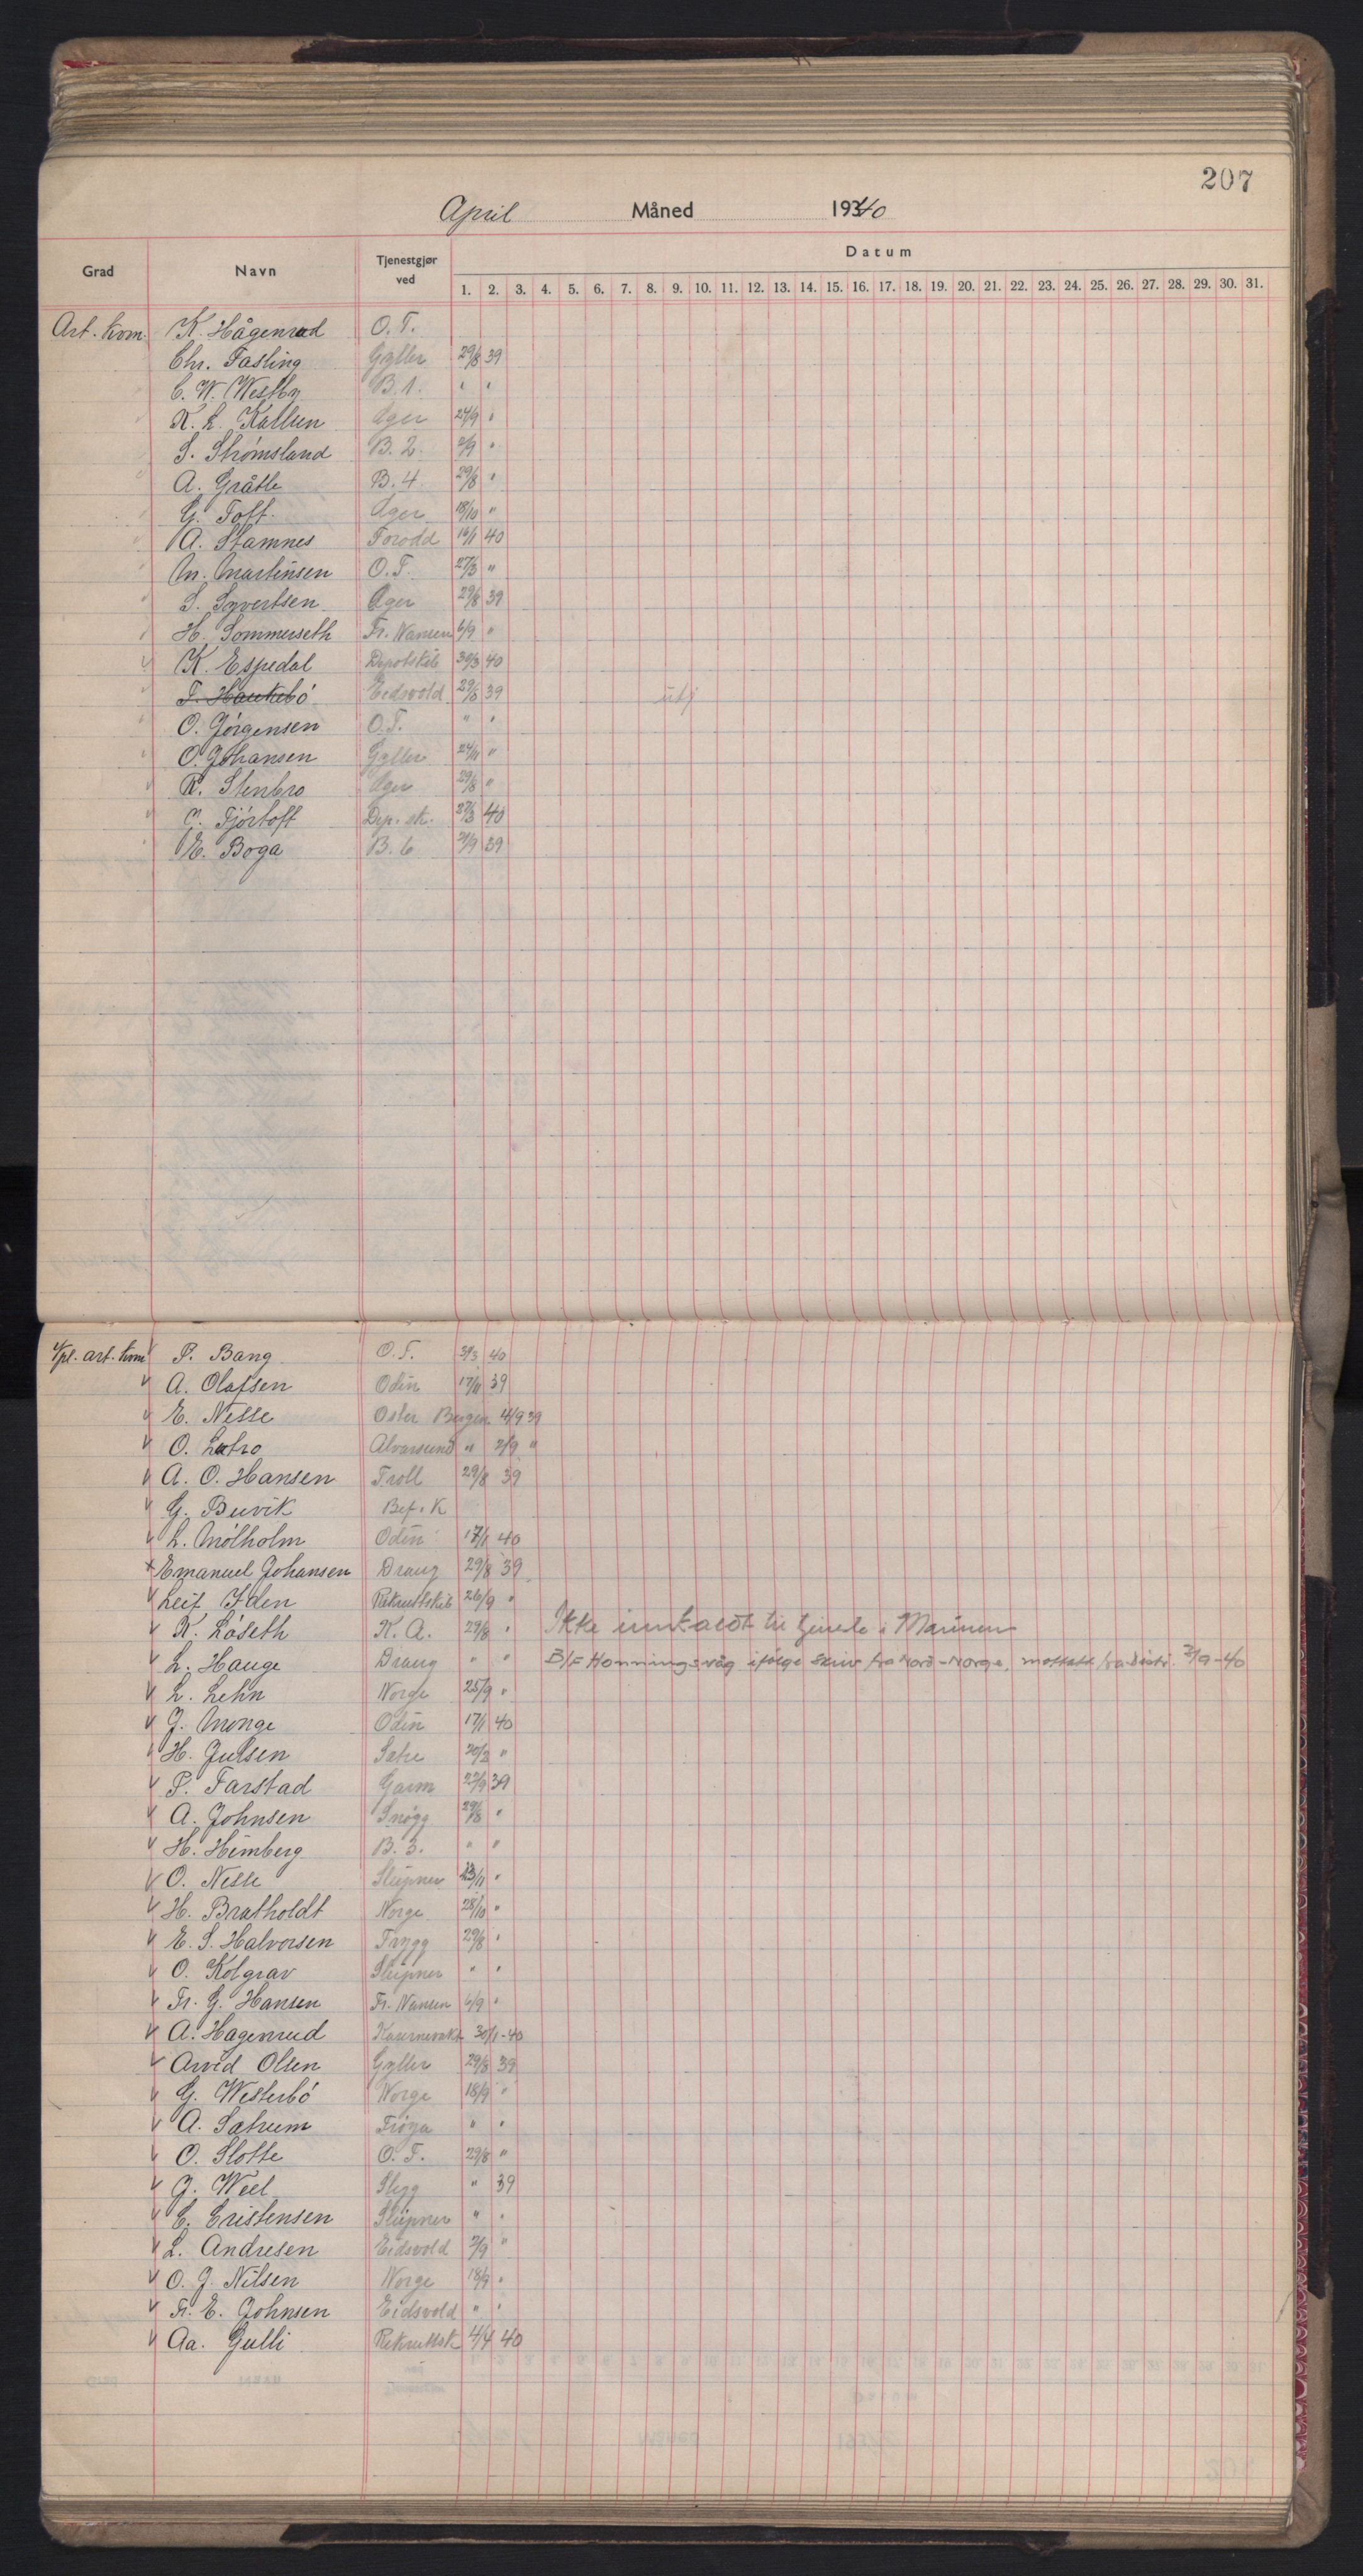 207
April Måned 1940
Grad Navn Tjenestgjør ved Datum
1. 2. 3. 4. 5. 6. 7. 8. 9. 10. 11. 12. 13. 14. 15. 16. 17. 18. 19. 20. 21. 22. 23. 24. 25. 26. 27. 28. 29. 30. 31.
Art. kvm. K. Hågenrud O. T.
Chr. Fasting Gyller 29/8 39
C. W. Westby B. 1. " "
K. L. Karlsen Æger 24/9 "
S. Strømsland B. 2. 2/9 "
A. Gråtle B. 4. 29/8 "
G. Toft Æger 18/10 "
A. Stamnes Forodd 16/1 40
M. Martinsen O. T. 27/3 "
S. Syvertsen Æger 29/8 39
H. Sommerseth Fr. Nansen 6/9 "
K. Espedal Depotskib 30/3 40
T. Haukebö Eidsvold 29/8 39 utj
O. Jörgensen O. T. " "
O. Johansen Gyller 24/11 "
R. Stenbro Æger 29/8 "
Fjörtoft Dep. sk. 27/3 40
E. Boga B. 6 2/9 39
Vpl. art. kvm P. Bang O. T. 40
A. Olafsen Odin 17/11 39
E. Nesse Oster Bergen 4/9 39
O. Alvarsund " 2/9 "
A. O. Hansen Troll 29/8 39
G. Buvik Bef. K
L. Mölholm Odin 17/1 40
Emanuel Johansen Draug 29/8 39
Leif Iden Rekruttskib 26/9 "
K. Löseth K. A. 29/8 " Ikke innkaldt til tjeneste i Marinen
L. Hauge Draug " " B/F Honningsvåg ifølge skriv fra Nord-Norge, mottatt fra distr. 2/9-40
L. Lehn Norge 25/9 "
J. Monge Odin 17/1 40
H. Julsen Sætre 20/2 "
P. Farstad Garm 22/9 39
A. Johnsen Snøgg 29/8 "
H. Himberg B. 3. " "
O. Nesse Sleipner 23/11 "
H. Bratholdt Norge 28/10 "
E. S. Halvorsen Trygg 29/8 "
O. Kolgrav Sleipner " "
Fr. G. Hansen Fr. Nansen 6/9 "
A. Hagenrud Kasernevakt 30/1-40
Arvid Olsen Gyller 29/8 39
G. Westerbö Norge 18/9 "
A. Sætrum Frøya " "
O. Slotte O. T. 29/8 "
J. Weel Stegg " 39
E. Eristensen Sleipner " "
L. Andresen Eidsvold 2/9 "
O. J. Nilsen Norge 18/9 "
Fr. E. Johnsen Eidsvold " "
Aa. Gulli Rekruttsk 4/4 40